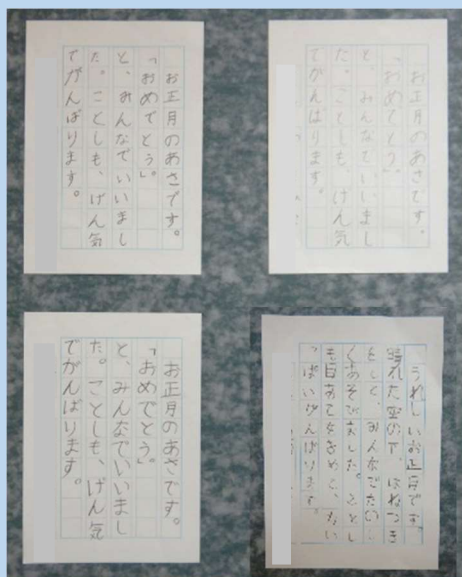 お正月のあさです。
「おめでとう」
と、みんなでいいまし
た。ことしも、げん気
でがんばります。
お正月のあさです。
「おめでとう」
と、みんなでいいまし
た。ことしも、げん気
でがんばります。
お正月のあさです。
「おめでとう」
と、みんなでいいまし
た。ことしも、げん気
でがんばります。
うれしいお正月です。
晴れた空の下、はねつき
をして、みんなで
くあそびました。ことし
も目あてをきめて、
っぱいがんばります。